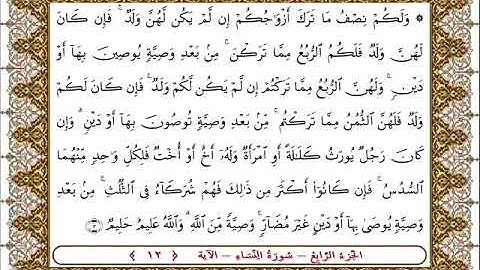 ۞ وَلَكُمْ نِصْفُ مَا تَرَكَ أَزْوَٰجُكُمْ إِن لَّمْ يَكُن لَّهُنَّ وَلَدٌ ۚ فَإِن كَانَ
لَهُنَّ وَلَدٌ فَلَكُمُ ٱلرُّبُعُ مِمَّا تَرَكْنَ ۚ مِنۢ بَعْدِ وَصِيَّةٍ يُوصِينَ بِهَآ أَوْ
دَيْنٍ ۚ وَلَهُنَّ ٱلرُّبُعُ مِمَّا تَرَكْتُمْ إِن لَّمْ يَكُن لَّكُمْ وَلَدٌ ۚ فَإِن كَانَ لَكُمْ
وَلَدٌ فَلَهُنَّ ٱلثُّمُنُ مِمَّا تَرَكْتُم ۚ مِّنۢ بَعْدِ وَصِيَّةٍ تُوصُونَ بِهَآ أَوْ دَيْنٍ ۗ وَإِن
كَانَ رَجُلٌ يُورَثُ كَلَٰلَةً أَوِ ٱمْرَأَةٌ وَلَهُۥٓ أَخٌ أَوْ أُخْتٌ فَلِكُلِّ وَٰحِدٍ مِّنْهُمَا
ٱلسُّدُسُ ۚ فَإِن كَانُوٓا۟ أَكْثَرَ مِن ذَٰلِكَ فَهُمْ شُرَكَآءُ فِى ٱلثُّلُثِ ۚ مِنۢ بَعْدِ
وَصِيَّةٍ يُوصَىٰ بِهَآ أَوْ دَيْنٍ غَيْرَ مُضَآرٍّ ۚ وَصِيَّةً مِّنَ ٱللَّهِ ۗ وَٱللَّهُ عَلِيمٌ حَلِيمٌ ۝١٢
الجزء الرابع – سورة النساء – الآية ﴿ ١٢ ﴾